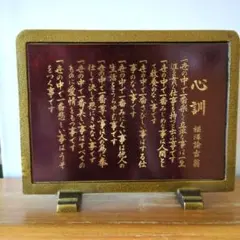 心訓
福澤諭吉翁
一、世の中で一番楽しく立派な事は一生
涯を貫く仕事を持つと云ふ事です
一、世の中で一番みじめな事は人間と
して教養のない事です
一、世の中で一番さびしい事はする仕
事のない事です
一、世の中で一番みにくい事は他人の
生活をうらやむ事です
一、世の中で一番尊い事は人の為に奉
仕して決して恩にきせない事です
一、世の中で一番美しい事はすべての
ものに愛情を持つ事です
一、世の中で一番悲しい事はうそ
をつく事です